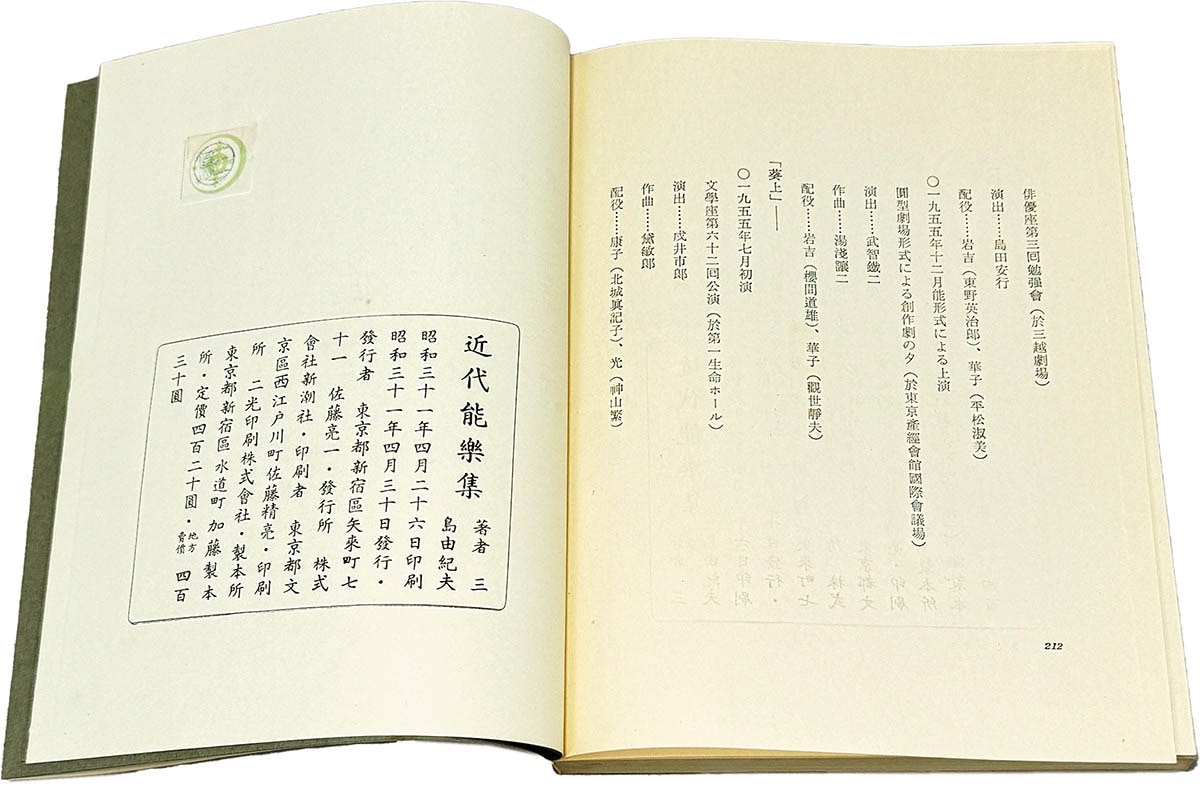 俳優座第三回勉强會(於三越劇場)
演出……島田安行
配役……岩吉(東野英治郎)、華子(平松淑美)
〇一九五五年十二月能形式による上演
圓型劇場形式による創作劇の夕(於東京產經會館國際會議場)
演出……武智鐵二
作曲……湯淺讓二
配役……岩吉(櫻間道雄)、華子(觀世靜夫)
「葵上」——
〇一九五五年七月初演
文學座第六十二回公演(於第一生命ホール)
演出……戌井市郎
作曲……黛敏郎
配役……康子(北城眞記子)、光(神山繁)
212
近代能樂集 著者 三
島由紀夫
昭和三十一年四月二十六日印刷
昭和三十一年四月三十日發行・
發行者 東京都新宿區矢來町七
十一 佐藤亮一・發行所 株式
會社新潮社・印刷者 東京都文
京區西江戸川町佐藤精亮・印刷
所 二光印刷株式會社・製本所
東京都新宿區水道町加藤製本
所・定價四百二十圓・地方賣價 四百
三十圓